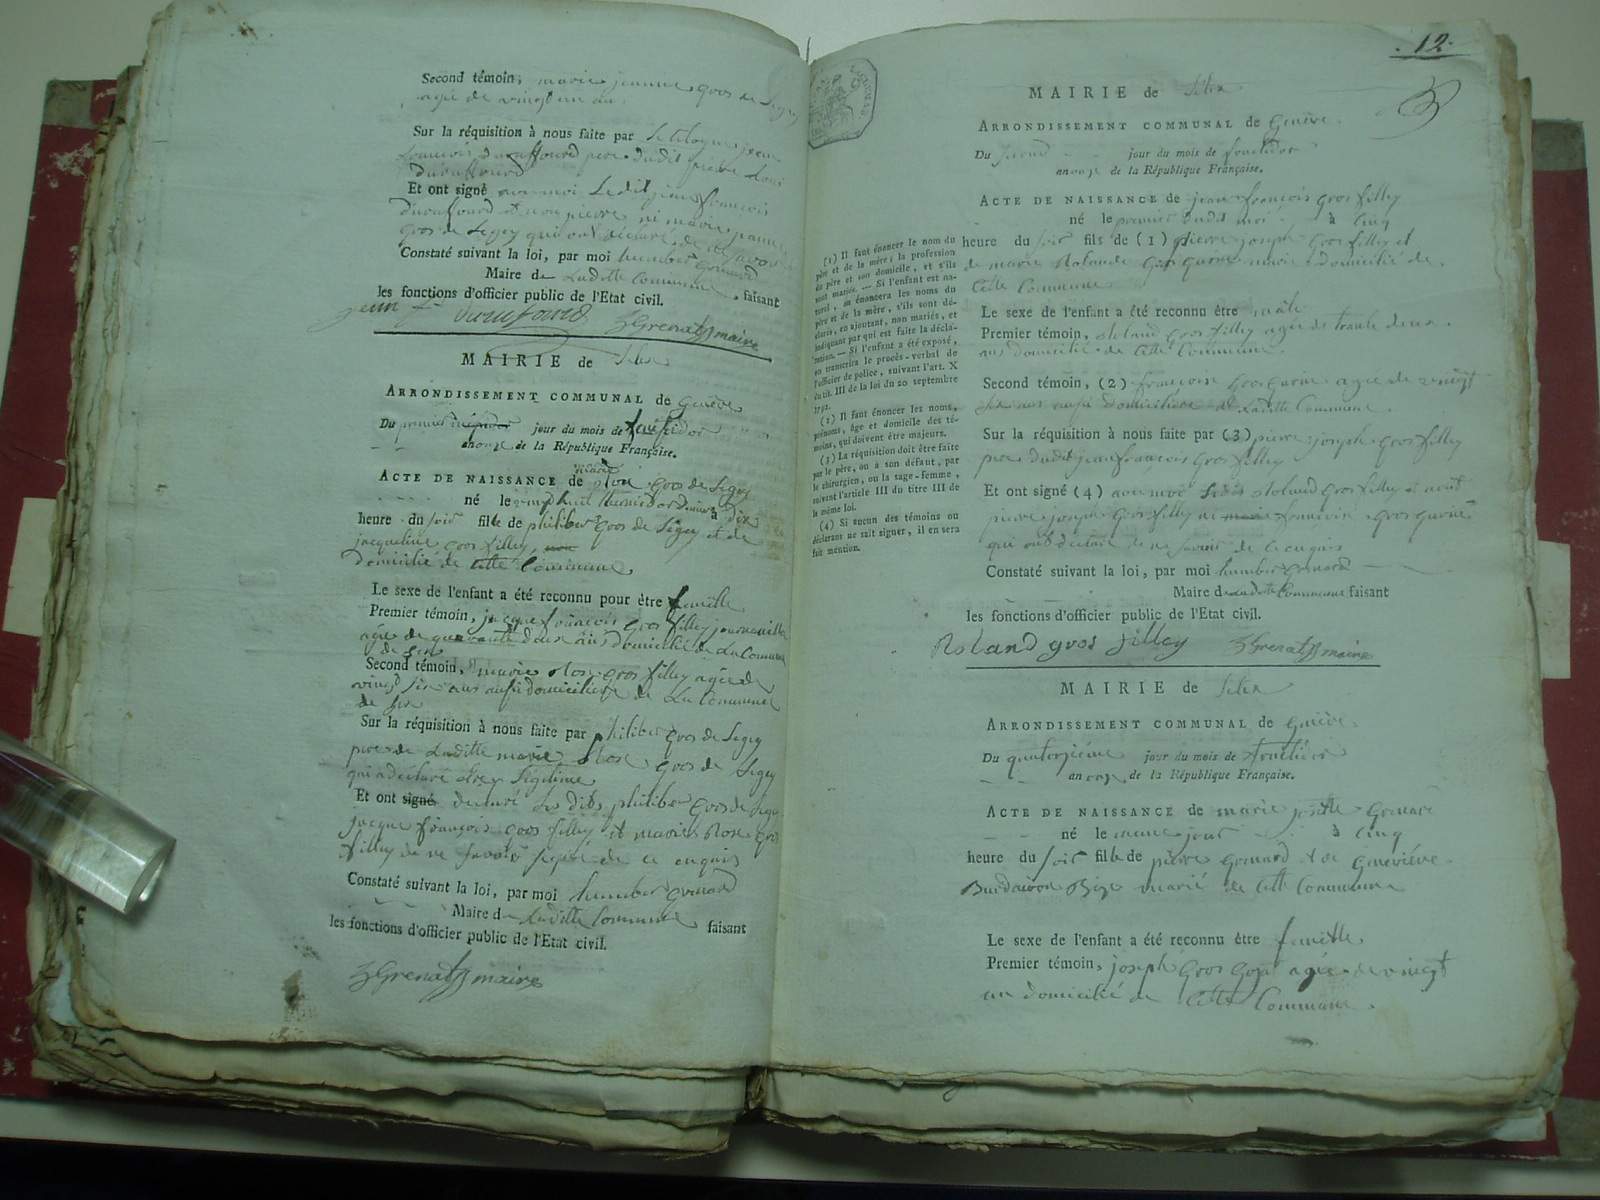 Second témoin, marie jeanne gros de Segey
agée de vingt un an
Sur la réquisition à nous faite par le citoyen jean
francois duraffourd pere dudit pierre louis
duraffourd
Et ont signé avec moi Ledit jean francois
duraffourd et non pierre ni marie jeanne
gros de Segey qui ont déclaré de ne savoir
Constaté suivant la loi, par moi humber grenard
Maire de Laditte Commune, faisant
les fonctions d'officier public de l'Etat civil.
jean f. Duraffourd Grenard maire
MAIRIE de
ARRONDISSEMENT COMMUNAL de Genève
Du premier jour du mois de fructidor
an onze de la République Française.
marie
ACTE DE NAISSANCE de Rose gros de Segey
né le vingt huit thermidor à dix
heure du soir fille de philiber gros de Segey et de
jacqueline gros filley
domicilié de cette Commune
Le sexe de l'enfant a été reconnu pour être femelle
Premier témoin, jacque francois gros filley
agée de quarante deux ans domicilié de La Commune
de
Second témoin, marie Rose gros filley agée de
vingt six ans aussi domiciliée de La Commune
de
Sur la réquisition à nous faite par philiber gros de Segey
pere de Laditte marie Rose gros de Segey
qui a déclaré etre légitime
Et ont signé declaré Les dits philiber gros de Segey
jacque francois gros filley et marie Rose gros
filley de ne savoir signé de ce enquis
Constaté suivant la loi, par moi humber grenard
Maire de Laditte Commune faisant
les fonctions d'officier public de l'Etat civil.
Grenard maire
12
MAIRIE de
ARRONDISSEMENT COMMUNAL de Genève
Du second jour du mois de fructidor
an onze de la République Française.
ACTE DE NAISSANCE de jean francois gros filley
né le premier dudit moi à cinq
heure du soir fils de (1) pierre joseph gros filley et
de marie Rolande gros gurin mariés domicilié de
Cette Commune
Le sexe de l'enfant a été reconnu être mâle
Premier témoin, Roland gros filley agée de trante deux
ans domicilié de Cette Commune
Second témoin, (2) francoise gros gurin agée de vingt
six ans aussi domiciliée de Laditte Commune
Sur la réquisition à nous faite par (3) pierre joseph gros filley
pere dudit jean francois gros filley
Et ont signé (4) avec moi Ledit Roland gros filley et non
pierre joseph gros filley ni francoise gros gurin
qui ont declaré de ne savoir de ce enquis
Constaté suivant la loi, par moi humber grenard
Maire de Laditte Commune faisant
les fonctions d'officier public de l'Etat civil.
Roland gros filley Grenard maire
(1) Il faut énoncer le nom du
père et de la mère; la profession
du père et son domicile, et s'ils
sont mariés. — Si l'enfant est na-
turel, on énoncera les noms du
père et de la mère, s'ils sont dé-
clarés, en ajoutant, non mariés, et
indiquant par qui est faite la décla-
ration. — Si l'enfant a été exposé,
on transcrira le procès-verbal de
l'officier de police, suivant l'art. X
du tit. III de la loi du 20 septembre
1792.
(2) Il faut énoncer les noms,
prénoms, âge et domicile des té-
moins, qui doivent être majeurs.
(3) La réquisition doit être faite
par le père, ou à son défaut, par
le chirurgien, ou la sage-femme,
suivant l'article III du titre III de
la même loi.
(4) Si aucun des témoins ou
déclarans ne sait signer, il en sera
fait mention.
MAIRIE de
ARRONDISSEMENT COMMUNAL de Genève
Du quatorzieme jour du mois de fructidor
an onze de la République Française.
ACTE DE NAISSANCE de marie josette Grenard
né le meme jour à cinq
heure du soir fille de pierre grenard et de Geneviéve
marié de cette Commune
Le sexe de l'enfant a été reconnu être femelle
Premier témoin, joseph gros agée de vingt
un domicilié de Cette Commune.